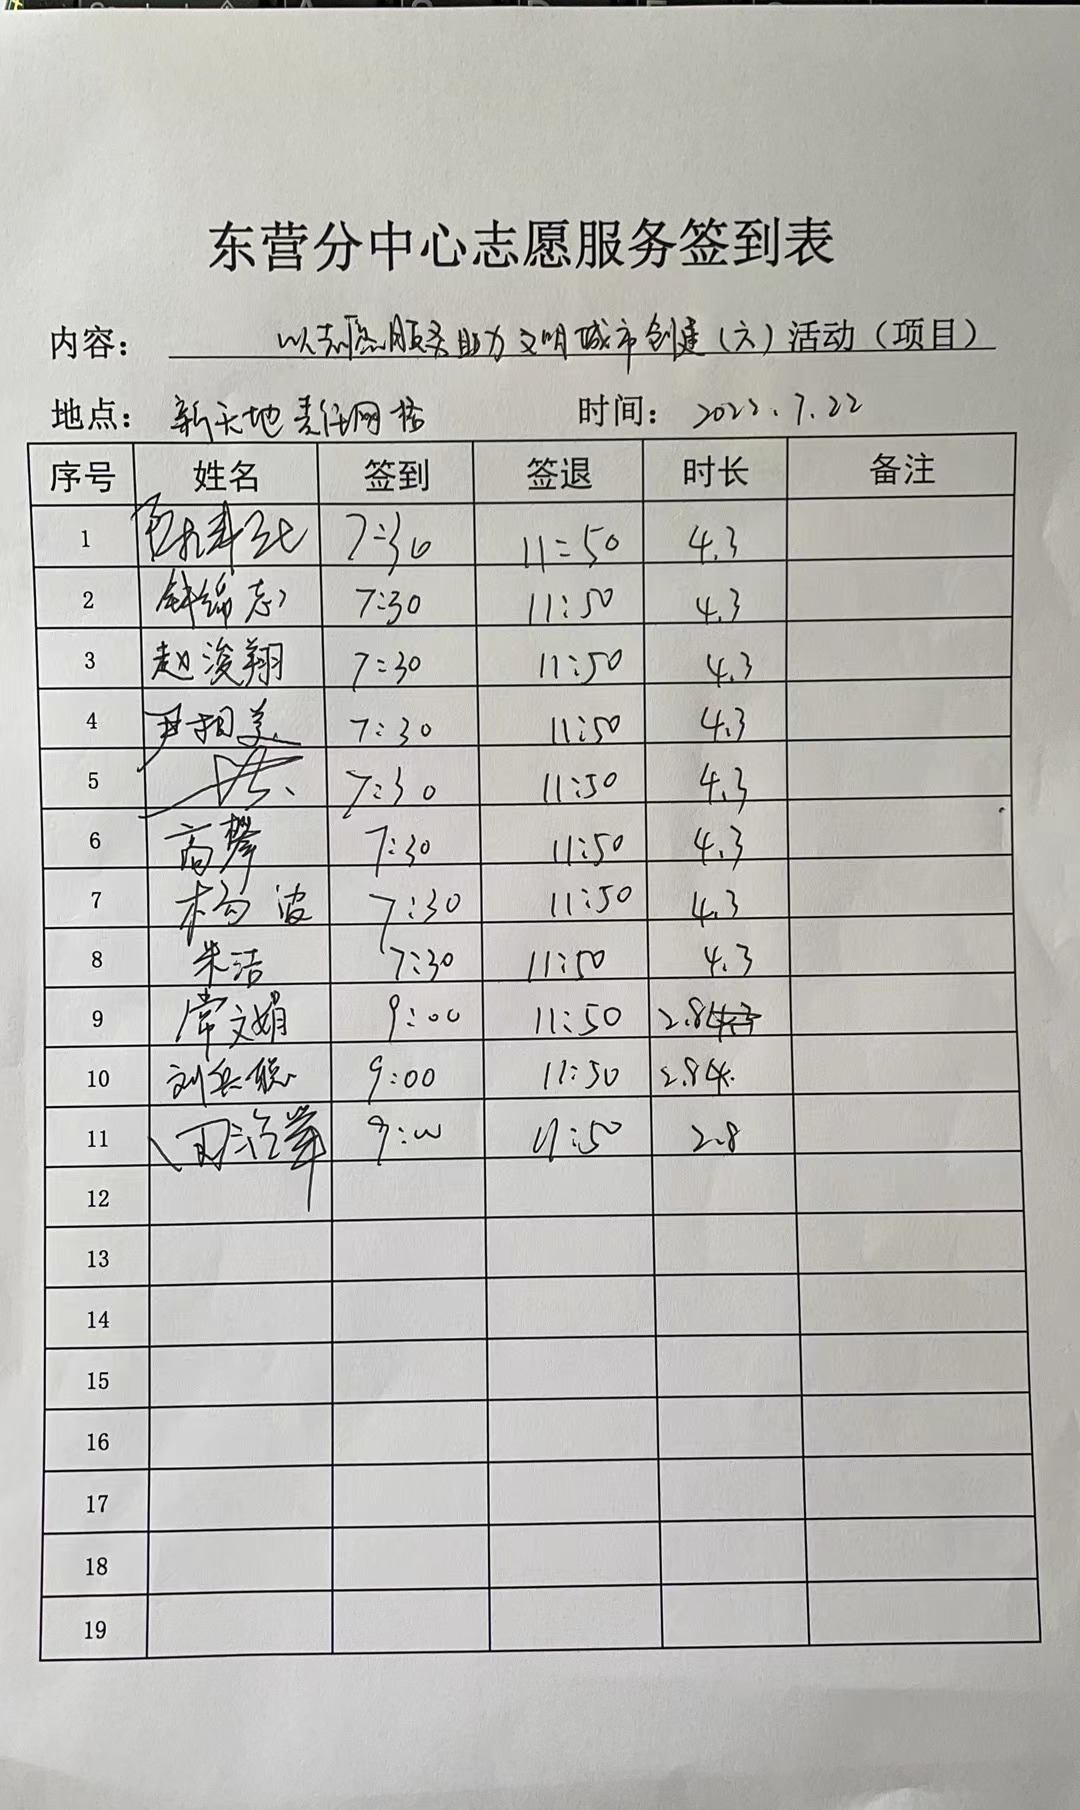 东营分中心志愿服务签到表
内容： 以志愿服务助力文明城市创建（六）活动（项目）
地点： 新天地责任网格 时间： 2022.7.22
序号 姓名 签到 签退 时长 备注
1 7:30 11:50 4.3
2 钟绵志 7:30 11:50 4.3
3 赵浚翔 7:30 11:50 4.3
4 尹相美 7:30 11:50 4.3
5 7:30 11:50 4.3
6 高攀 7:30 11:50 4.3
7 杨波 7:30 11:50 4.3
8 朱洁 7:30 11:50 4.3
9 常文娟 9:00 11:50 2.8
10 刘兵聪 9:00 11:50 2.8
11 9:00 11:50 2.8
12
13
14
15
16
17
18
19